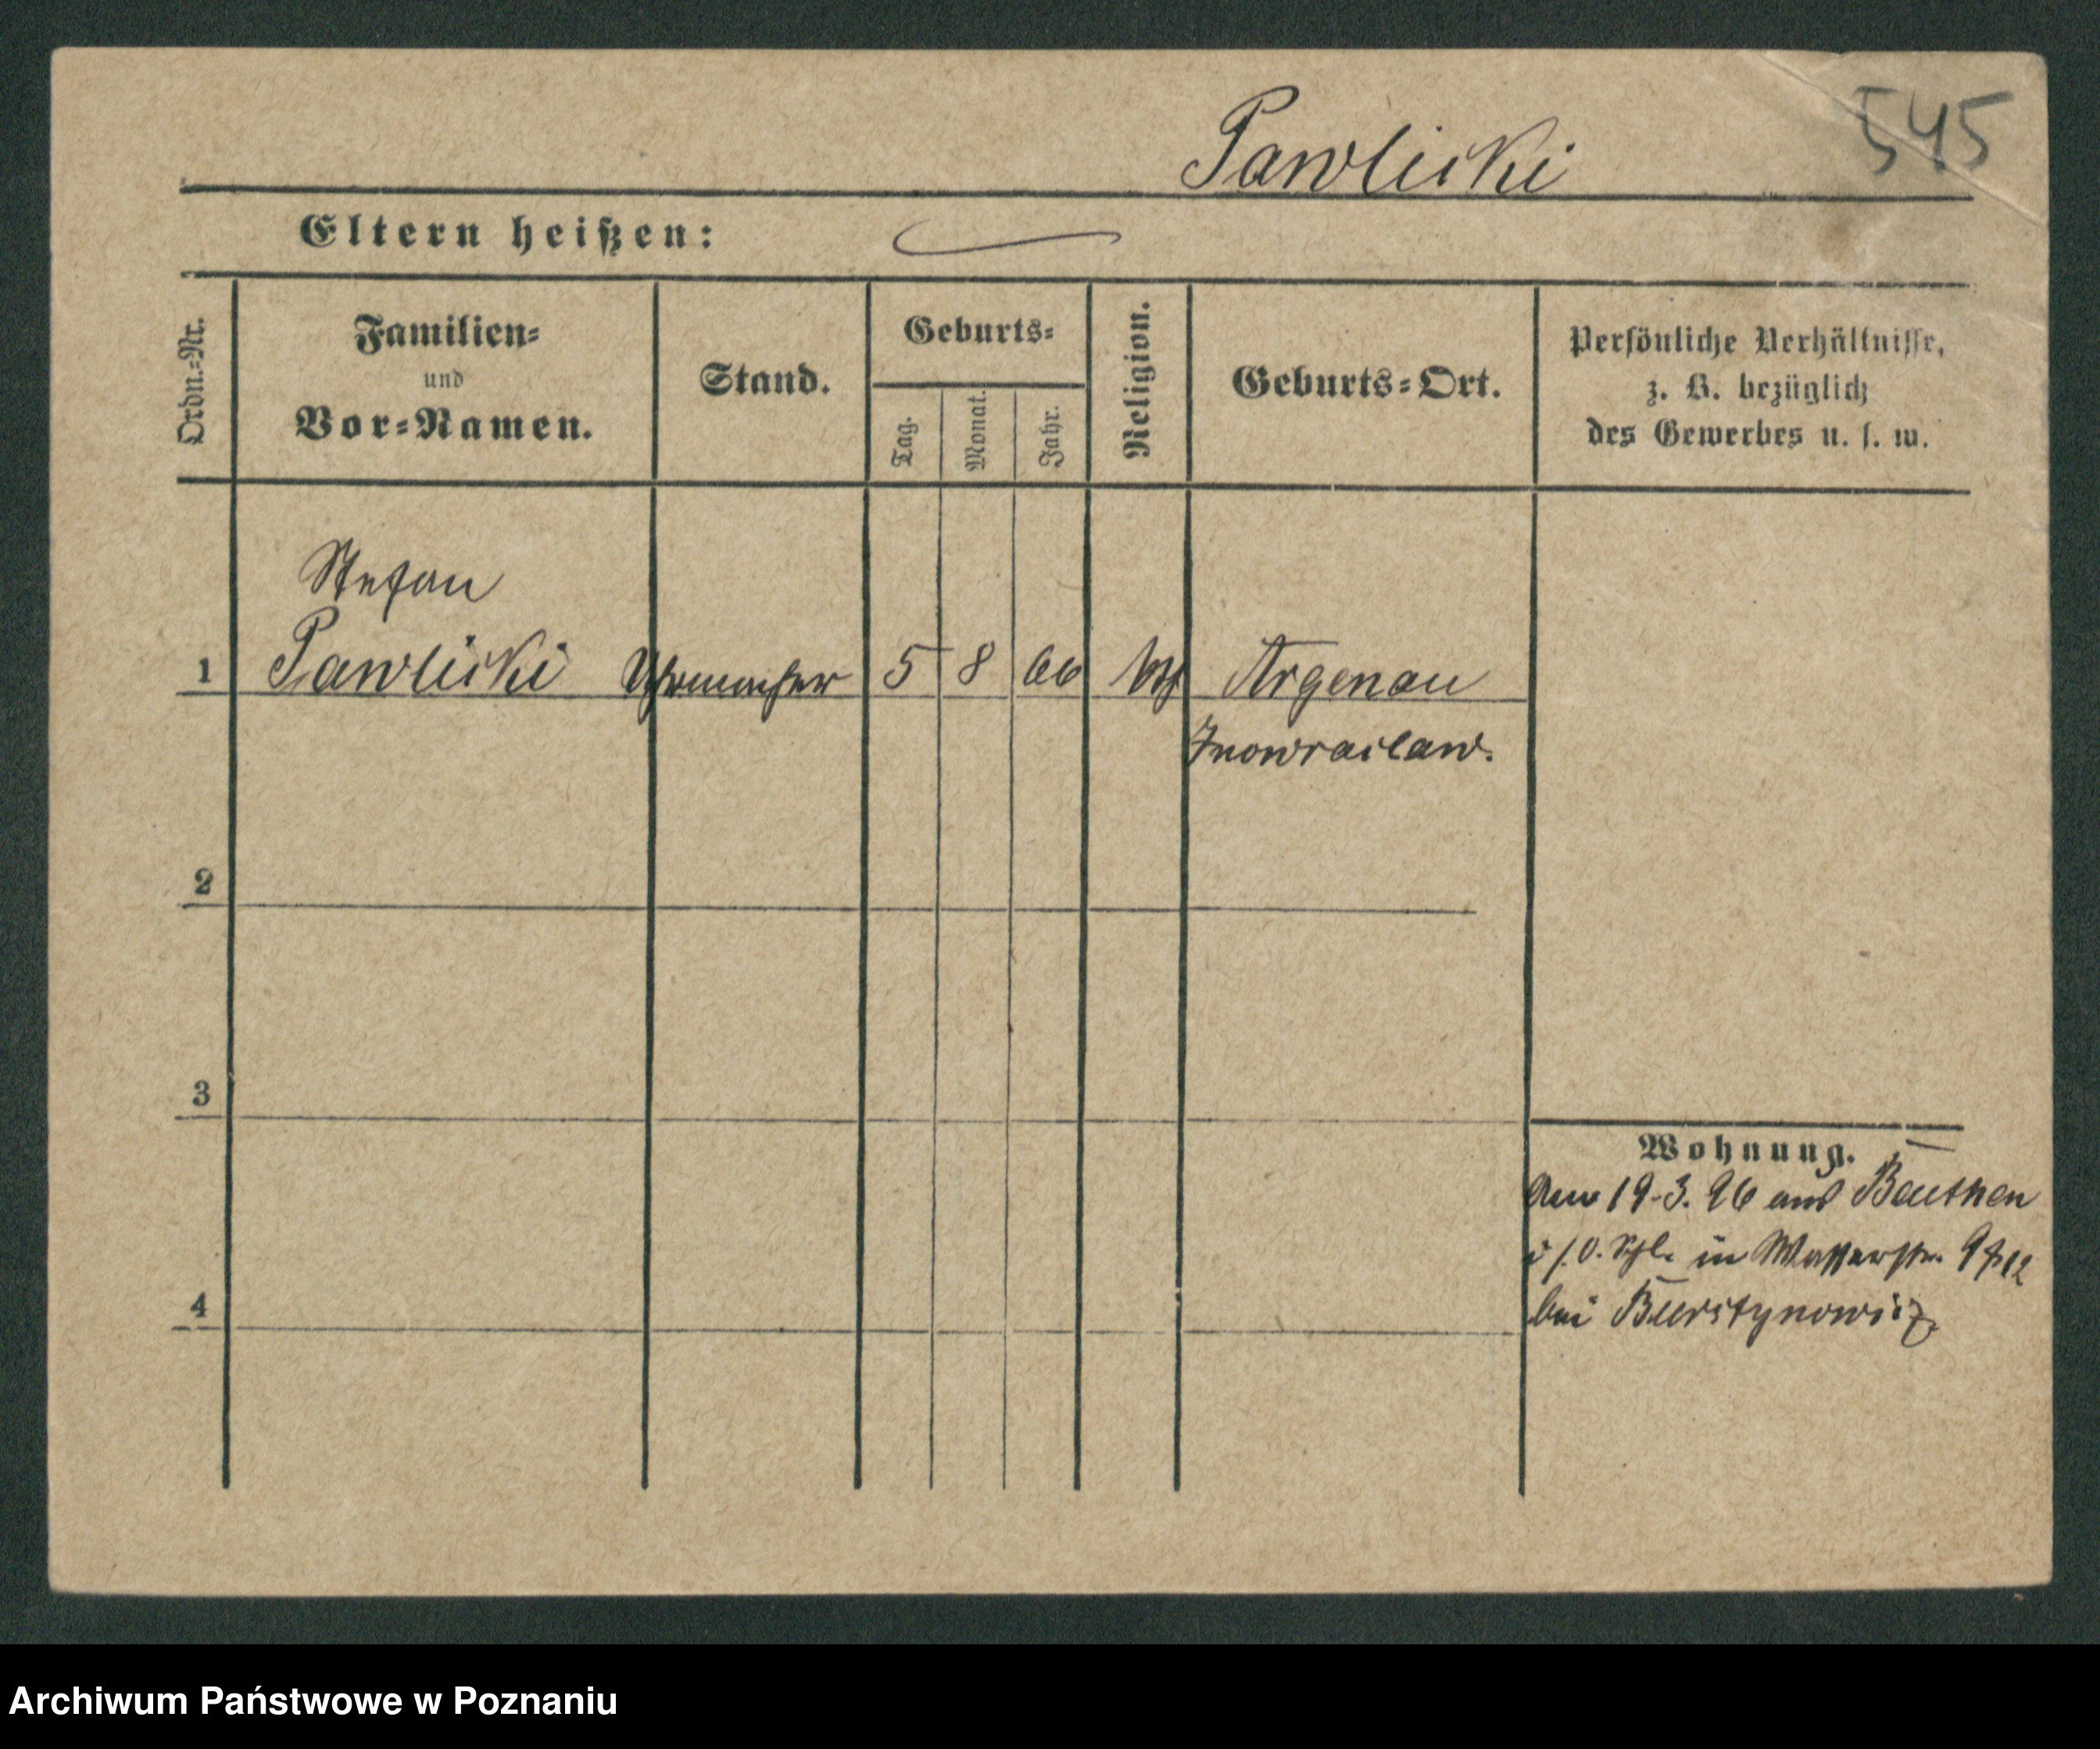 545
Pawlicki
Eltern heißen:
Ordn.=Nr.
Familien=
und
Vor=Namen.
Stand.
Geburts=
Tag.
Monat.
Jahr.
Religion.
Geburts=Ort.
Persönliche Verhältnisse,
z. B. bezüglich
des Gewerbes u. s. w.
Stefan
1 Pawlicki Uhrmacher 5 8 66 Argenau
Inowraclaw.
2
3
Wohnung.
Am 19-3. 96 aus Beuthen
i/O. Schl. in Wasserstr.
4
bei Burstynowicz
Archiwum Państwowe w Poznaniu